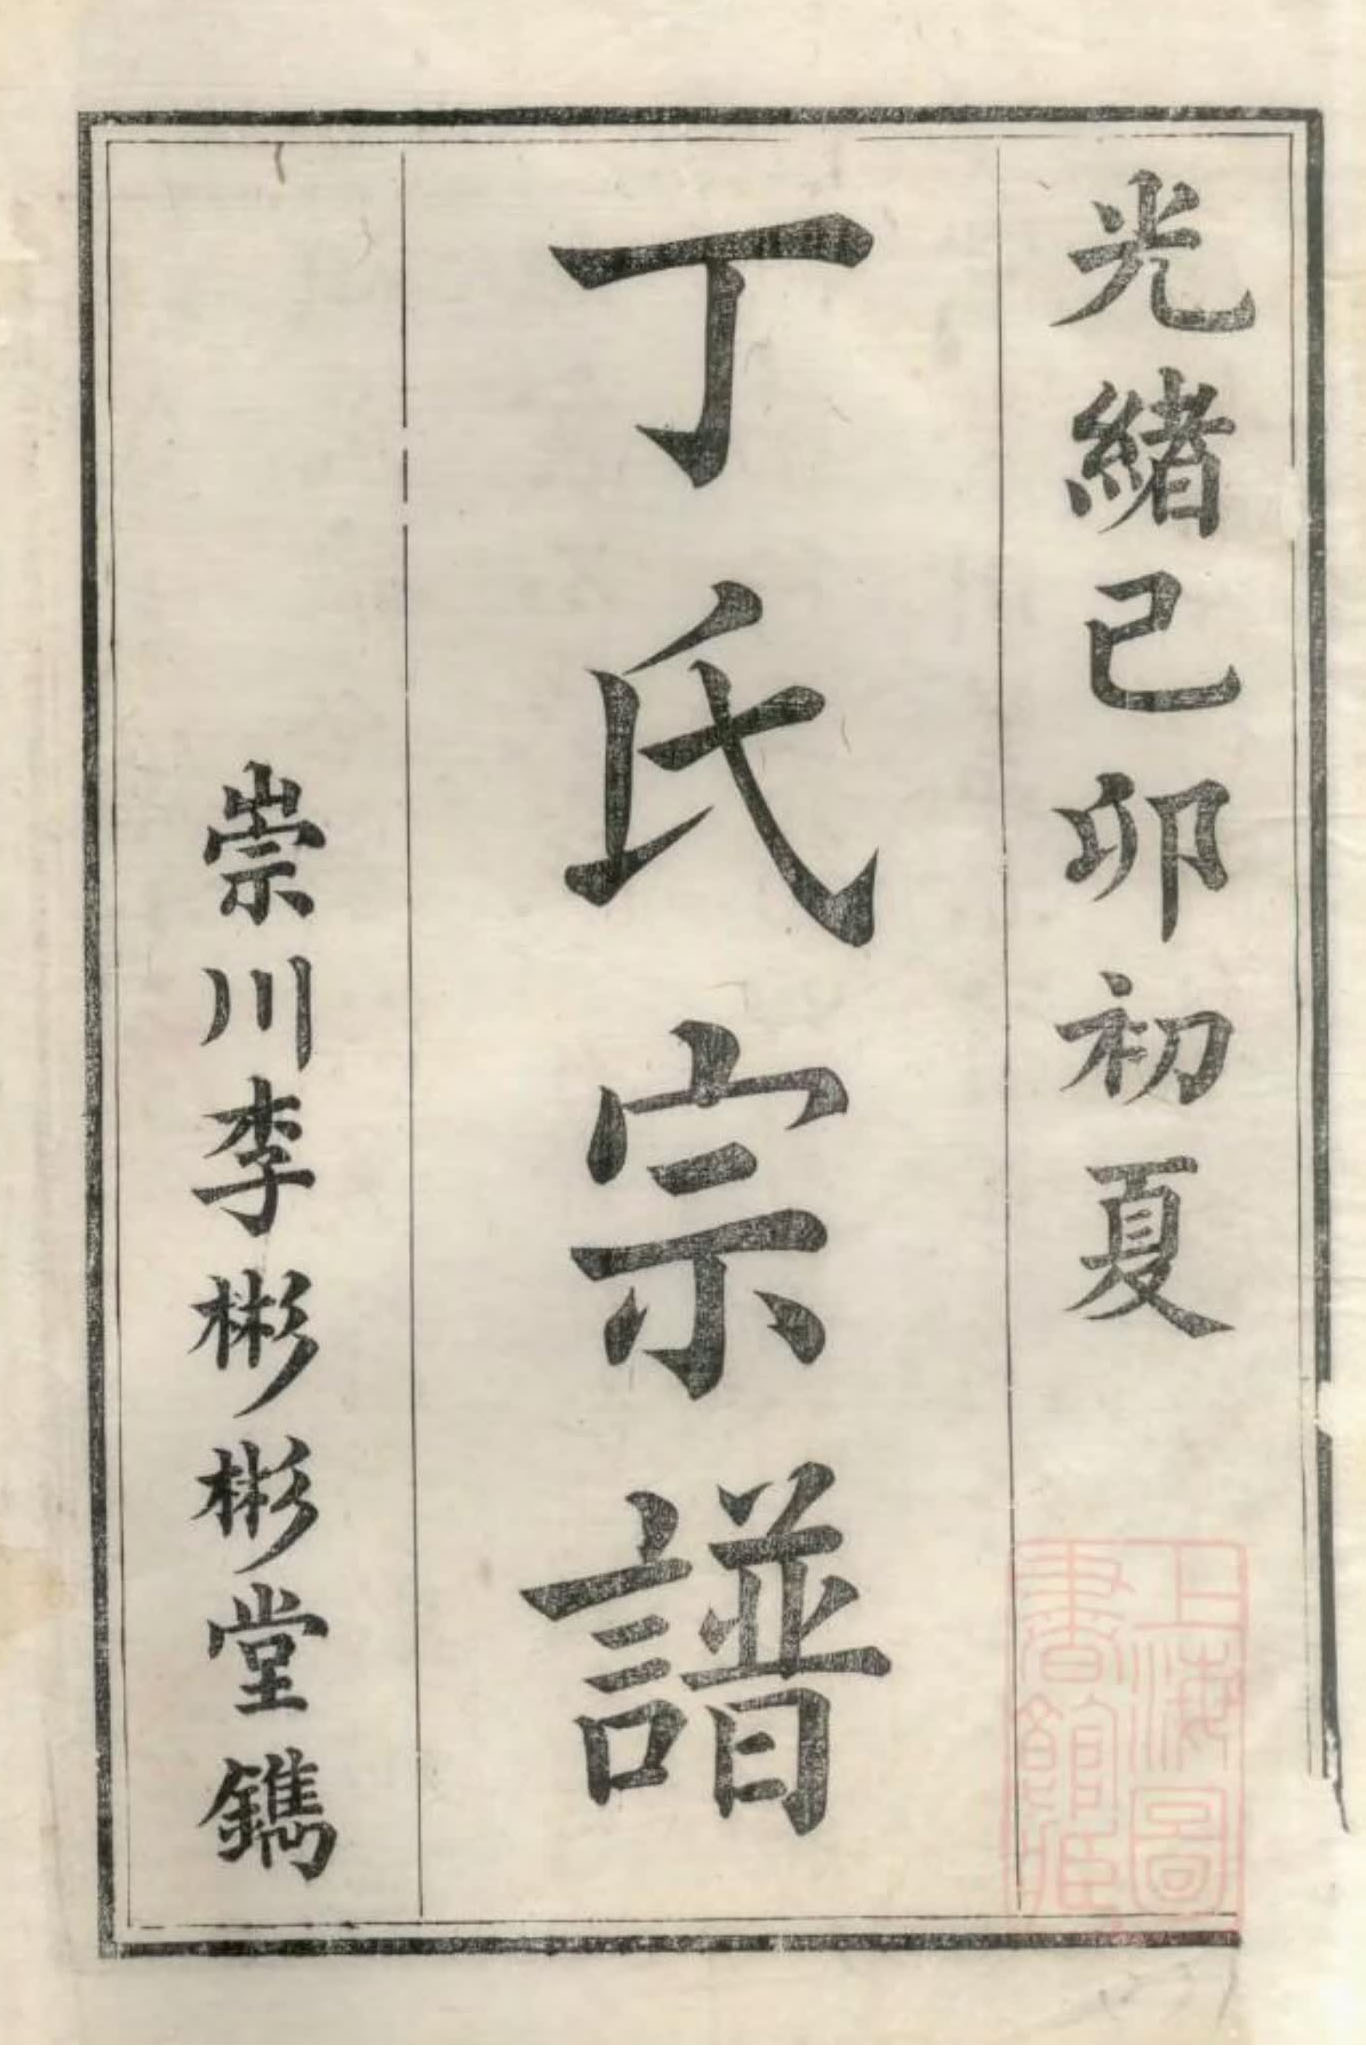 光緒己卯初夏
丁氏宗譜
崇川李彬彬堂鐫
上海圖
書館藏